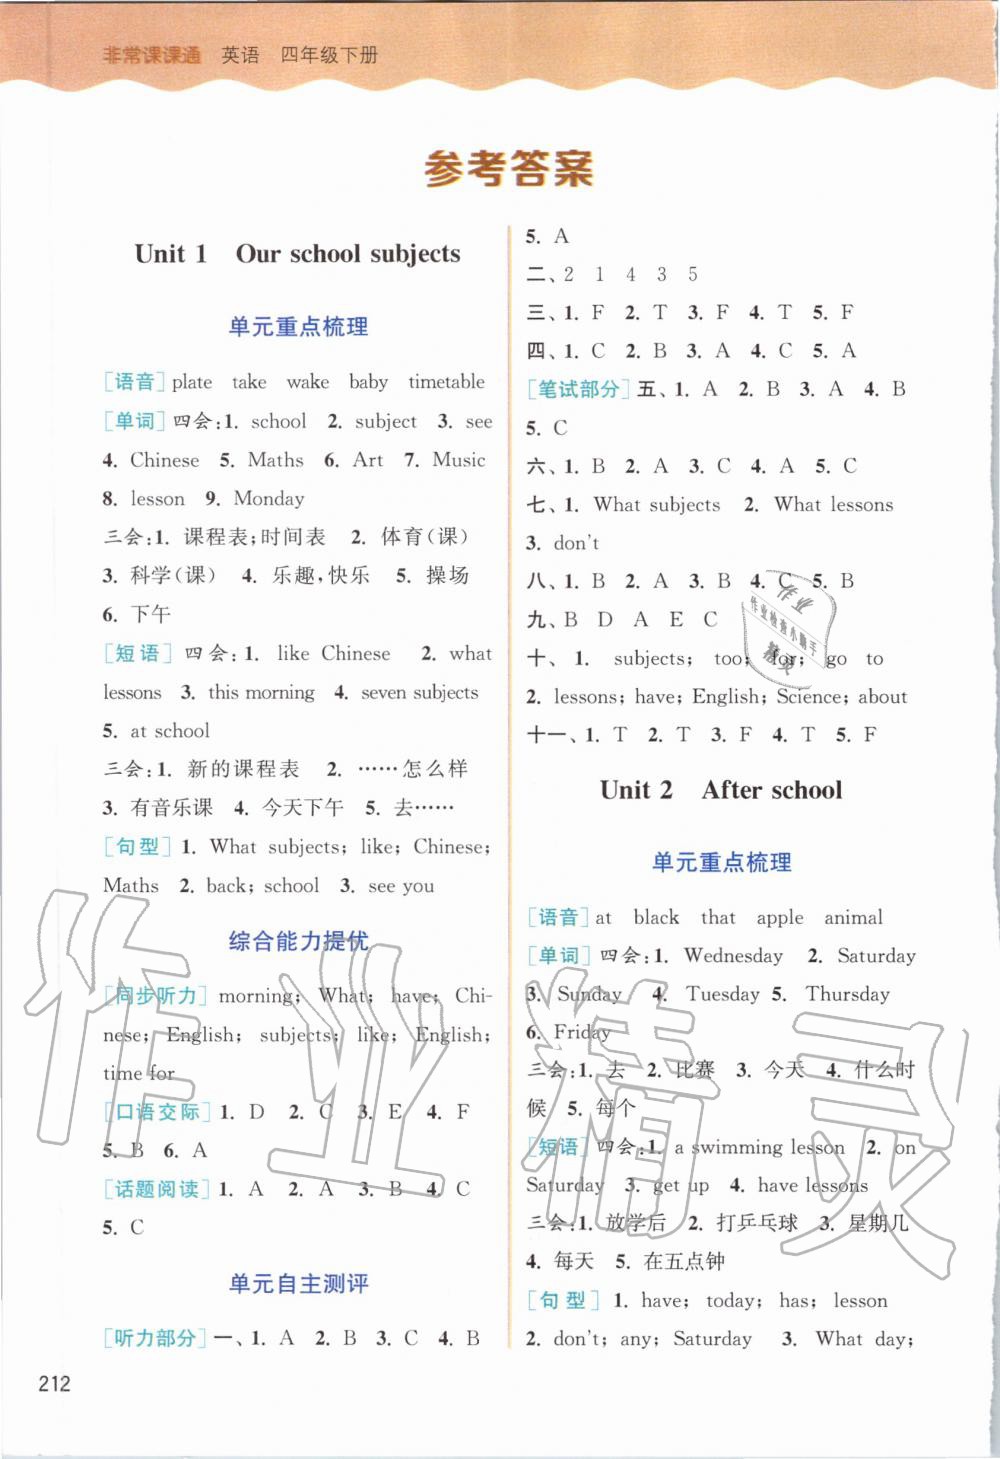 非常课课通 英语 四年级下册
参考答案
Unit 1 Our school subjects
单元重点梳理
[语音] plate take wake baby timetable
[单词] 四会:1. school 2. subject 3. see
4. Chinese 5. Maths 6. Art 7. Music
8. lesson 9. Monday
三会:1. 课程表;时间表 2. 体育(课)
3. 科学(课) 4. 乐趣,快乐 5. 操场
6. 下午
[短语] 四会:1. like Chinese 2. what
lessons 3. this morning 4. seven subjects
5. at school
三会:1. 新的课程表 2. ……怎么样
3. 有音乐课 4. 今天下午 5. 去……
[句型] 1. What subjects; like; Chinese;
Maths 2. back; school 3. see you
综合能力提优
[同步听力] morning; What; have; Chi-
nese; English; subjects; like; English;
time for
[口语交际] 1. D 2. C 3. E 4. F
5. B 6. A
[话题阅读] 1. A 2. A 3. B 4. C
5. C
单元自主测评
[听力部分] 一、1. A 2. B 3. C 4. B
5. A
二、2 1 4 3 5
三、1. F 2. T 3. F 4. T 5. F
四、1. C 2. B 3. A 4. C 5. A
[笔试部分] 五、1. A 2. B 3. A 4. B
5. C
六、1. B 2. A 3. C 4. A 5. C
七、1. What subjects 2. What lessons
3. don't
八、1. B 2. A 3. B 4. C 5. B
九、B D A E C
十、1. subjects; too; for; go to
2. lessons; have; English; Science; about
十一、1. T 2. T 3. F 4. T 5. F
Unit 2 After school
单元重点梳理
[语音] at black that apple animal
[单词] 四会:1. Wednesday 2. Saturday
3. Sunday 4. Tuesday 5. Thursday
6. Friday
三会:1. 去 2. 比赛 3. 今天 4. 什么时
候 5. 每个
[短语] 四会:1. a swimming lesson 2. on
Saturday 3. get up 4. have lessons
三会:1. 放学后 2. 打乒乓球 3. 星期几
4. 每天 5. 在五点钟
[句型] 1. have; today; has; lesson
2. don't; any; Saturday 3. What day;
212
作业精灵
作业
作业检查小助手
精灵